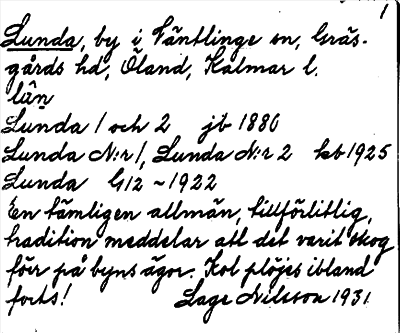 1
Lunda, by i Ventlinge sn, Gräs-
gårds hd, Öland, Kalmar l.
lûn
Lunda 1 och 2 jb 1880
Lunda N:r 1, Lunda N:r 2 kb 1925
Lunda G12 ~ 1922
En tämligen allmän, tillförlitlig,
tradition meddelar att det varit skog
förr på byns ägor. Kol plöjes ibland
forts! Lage Nilsson 1931